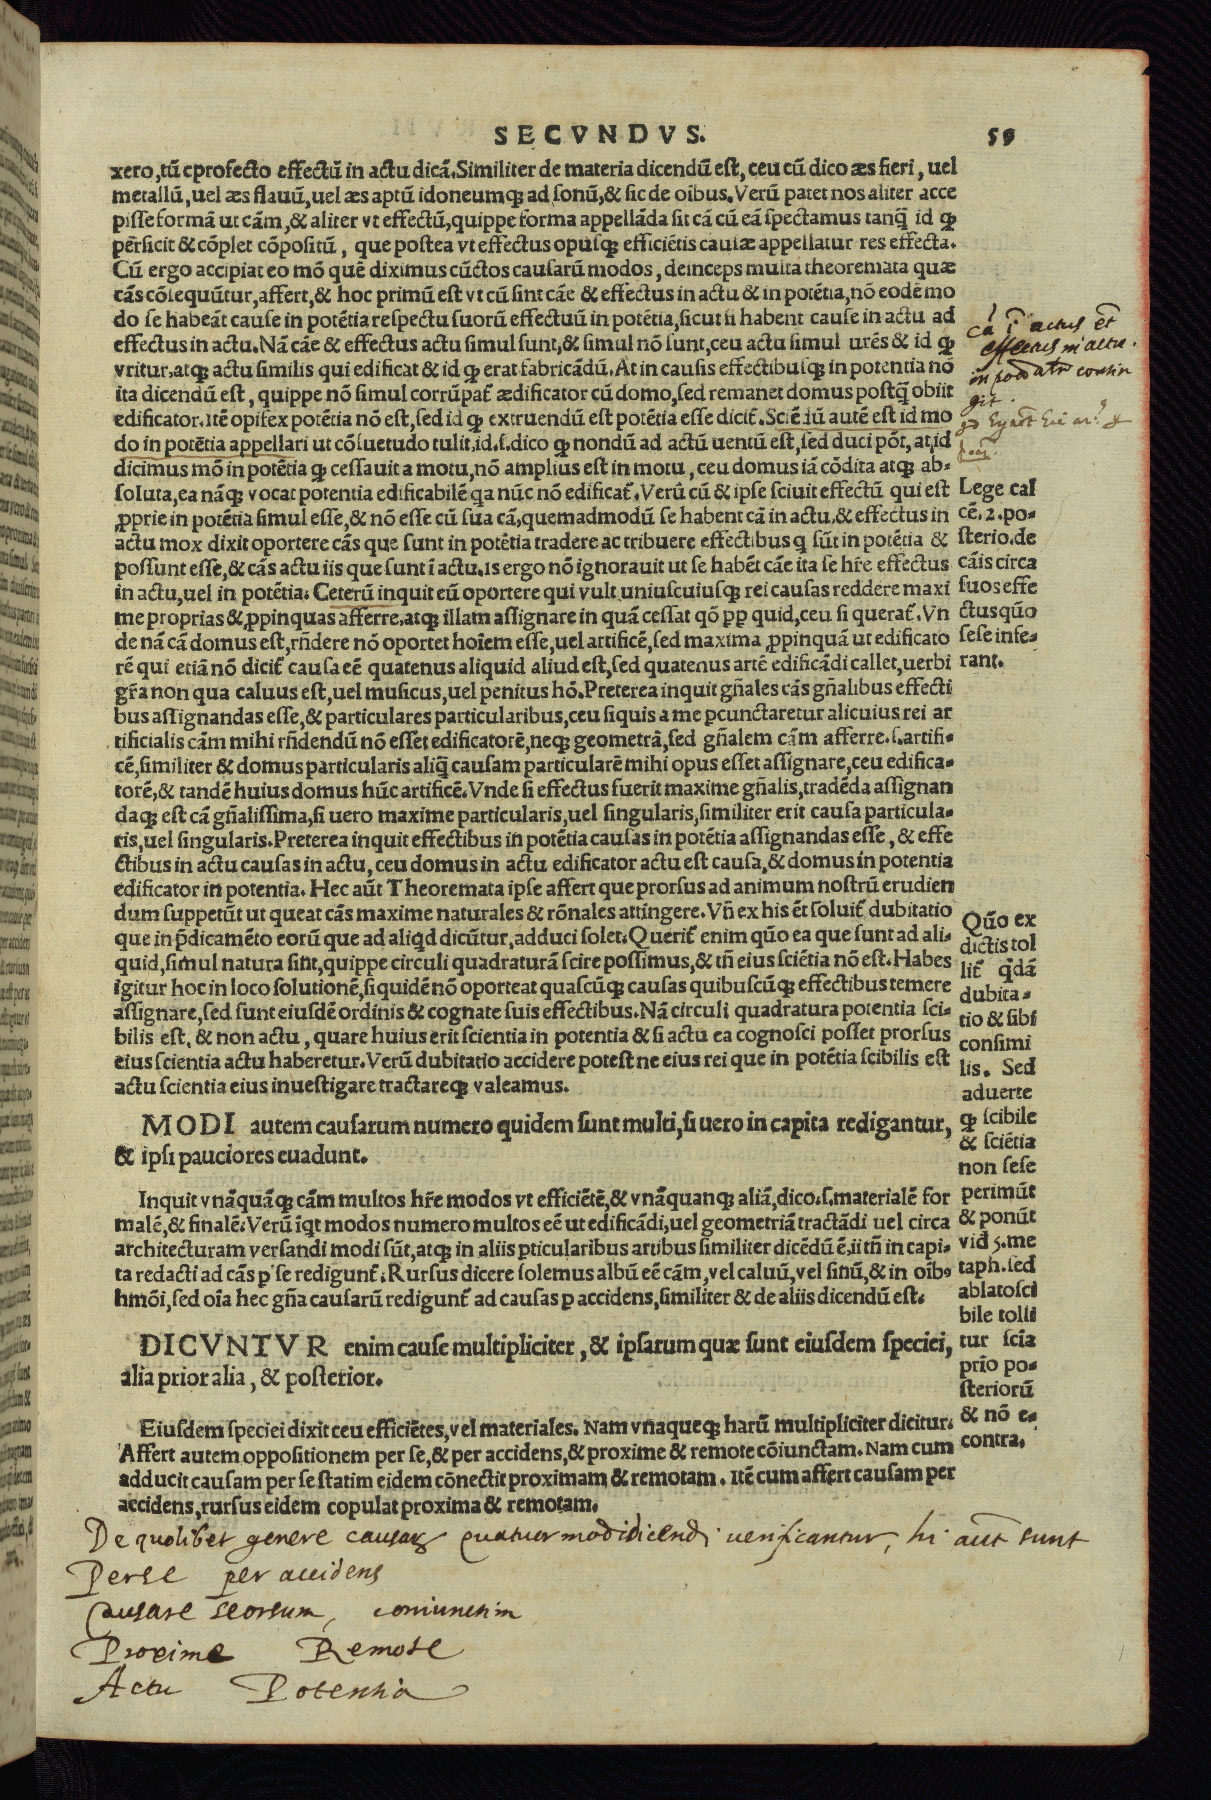 SECVNDVS. 59
xero, tũ cprofecto effectũ in actu dicã. Similiter de materia dicendũ est, ceu cũ dico æs fieri, uel
metallũ, uel æs flauũ, uel æs aptũ idoneumq; ad sonũ, & sic de oībus. Verũ patet nos aliter acce
pisse formã ut cãm, & aliter vt effectũ, quippe forma appellãda sit cã cũ eã spectamus tanq̃ id ꝙ
pẽrficit & cõplet cõpositũ, que postea vt effectus opusq; efficiẽtis causæ appellatur res effecta.
Cũ ergo accipiat eo mõ quẽ diximus cũctos causarũ modos, deinceps multa theoremata quæ
cãs cõsequũtur, affert, & hoc primũ est vt cũ sint cãe & effectus in actu & in potẽtia, nõ eodẽ mo
do se habeãt cause in potẽtia respectu suorũ effectuũ in potẽtia, sicut si habent cause in actu ad
effectus in actu. Nã cãe & effectus actu simul sunt, & simul nõ sunt, ceu actu simul urẽs & id ꝙ
vritur, atq; actu similis qui edificat & id ꝙ erat fabricãdũ. At in causis effectibusq; in potentia nõ
ita dicendũ est, quippe nõ simul corrũpat᷑ ædificator cũ domo, sed remanet domus postq̃ obiit
edificator. itẽ opifex potẽtia nõ est, sed id ꝙ extruendũ est potẽtia esse dicit᷑. Sciẽdũ autẽ est id mo
do in potẽtia appellari ut cõsuetudo tulit, id. s. dico ꝙ nondũ ad actũ uentũ est, sed duci põt, at, id
dicimus mõ in potẽtia ꝙ cessauit a motu, nõ amplius est in motu, ceu domus iã cõdita atq; ab-
soluta, ea nãq; vocat potentia edificabilẽ qa nũc nõ edificat᷑. Verũ cũ & ipse sciuit effectũ qui est
ꝓprie in potẽtia simul esse, & nõ esse cũ sua cã, quemadmodũ se habent cã in actu. & effectus in
actu mox dixit oportere cãs que sunt in potẽtia tradere ac tribuere effectibus q sũt in potẽtia &
possunt esse, & cãs actu iis que sunt ĩ actu. is ergo nõ ignorauit ut se habẽt cãe ita se hr̃e effectus
in actu, uel in potẽtia. Ceterũ inquit eũ oportere qui vult uniuscuiusq; rei causas reddere maxi
me proprias & ꝓpinquas afferre. atq; illam assignare in quã cessat qõ pp quid, ceu si querat᷑. Vn
de nã cã domus est, rñdere nõ oportet hoĩem esse, uel artificẽ, sed maxima ꝓpinquã ut edificato
rẽ qui etiã nõ dicit᷑ causa eẽ quatenus aliquid aliud est, sed quatenus artẽ edificãdi callet, uerbi
gr̃a non qua caluus est, uel musicus, uel penitus hõ. Preterea inquit gñales cãs gñalibus effecti
bus assignandas esse, & particulares particularibus, ceu siquis a me pcunctaretur alicuius rei ar
tificialis cãm mihi rñdendũ nõ esset edificatorẽ, neq; geometrã, sed gñalem cãm afferre. s. artifi-
cẽ, similiter & domus particularis aliq̃ causam particularẽ mihi opus esset assignare, ceu edifica-
torẽ, & tandẽ huius domus hũc artificẽ. Vnde si effectus fuerit maxime gñalis, tradẽda assignan
daq; est cã gñalissima, si uero maxime particularis, uel singularis, similiter erit causa particula-
ris, uel singularis. Preterea inquit effectibus in potẽtia causas in potẽtia assignandas esse, & effe
ctibus in actu causas in actu, ceu domus in actu edificator actu est causa, & domus in potentia
edificator in potentia. Hec aũt Theoremata ipse affert que prorsus ad animum nostrũ erudien
dum suppetũt ut queat cãs maxime naturales & rõnales attingere. Vñ ex his ẽt soluit᷑ dubitatio
que in p̃dicamẽto eorũ que ad aliqd dicũtur, adduci solet. Querit᷑ enim qũo ea que sunt ad ali-
quid, simul natura sint, quippe circuli quadraturã scire possimus, & tñ eius sciẽtia nõ est. Habes
igitur hoc in loco solutionẽ, siquidẽ nõ oporteat quascũq; causas quibuscũq; effectibus temere
assignare, sed sunt eiusdẽ ordinis & cognate suis effectibus. Nã circuli quadratura potentia sci-
bilis est, & non actu, quare huius erit scientia in potentia & si actu ea cognosci posset prorsus
eius scientia actu haberetur. Verũ dubitatio accidere potest ne eius rei que in potẽtia scibilis est
actu scientia eius inuestigare tractareq; valeamus.
MODI autem causarum numero quidem sunt multi, si uero in capita redigantur,
& ipsi pauciores euadunt.
Inquit vnãquãq; cãm multos hr̃e modos vt efficiẽtẽ, & vnãquanq; aliã, dico. s. materialẽ for
malẽ, & finalẽ. Verũ ĩqt modos numero multos eẽ ut edificãdi, uel geometriã tractãdi uel circa
architecturam versandi modi sũt, atq; in aliis pticularibus artibus similiter dicẽdũ ẽ, ii tñ in capi-
ta redacti ad cãs p se redigunt᷑. Rursus dicere solemus albũ eẽ cãm, vel caluũ, vel sinũ, & in oĩbꝰ
hmõi, sed oĩa hec gñа causarũ redigunt᷑ ad causas p accidens, similiter & de aliis dicendũ est.
DICVNTVR enim cause multipliciter, & ipsarum quæ sunt eiusdem speciei,
alia prior alia, & posterior.
Eiusdem speciei dixit ceu efficiẽtes, vel materiales. Nam vnaqueq; harũ multipliciter dicitur.
Affert autem oppositionem per se, & per accidens, & proxime & remote cõiunctam. Nam cum
adducit causam per se statim eidem cõnectit proximam & remotam. Itẽ cum affert causam per
accidens, rursus eidem copulat proxima & remotam.
effectus in actu.
Lege cal
cẽ. 2. po-
sterio. de
cãis circa
suos effe
ctus qũo
sese infe-
rant.
Qũo ex
dictis tol
lit᷑ q̃dã
dubita-
tio & sibi
consimi
lis. Sed
aduerte
ꝙ scibile
& sciẽtia
non sese
perimũt
& ponũt
vid 5. me
taph. sed
ablato sci
bile tolli
tur scia
prio po-
steriorũ
& nõ e-
contra.
De quolibet genere causaꝝ quatuor modi dicendi uerificantur, hi aũt sunt
Per se per accidens
Causare seorsum, coniunctim
Proxime Remote
Actu Potentia